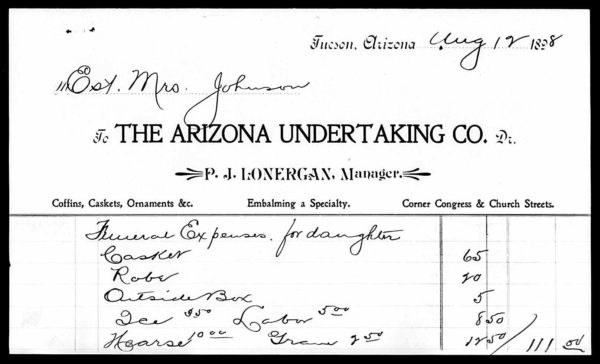 Tucson, Arizona Aug 12 1898
Est. Mrs. Johnson
To THE ARIZONA UNDERTAKING CO. Dr.
P. J. LONERGAN, Manager.
Coffins, Caskets, Ornaments &c. Embalming a Specialty. Corner Congress & Church Streets.
Funeral Expenses. for daughter
Casket 65
Robe 20
Outside Box 5
Ice 3 50 Labor 5 00 8 50
Hearse 10 00 2 50 12 50 / 111 00